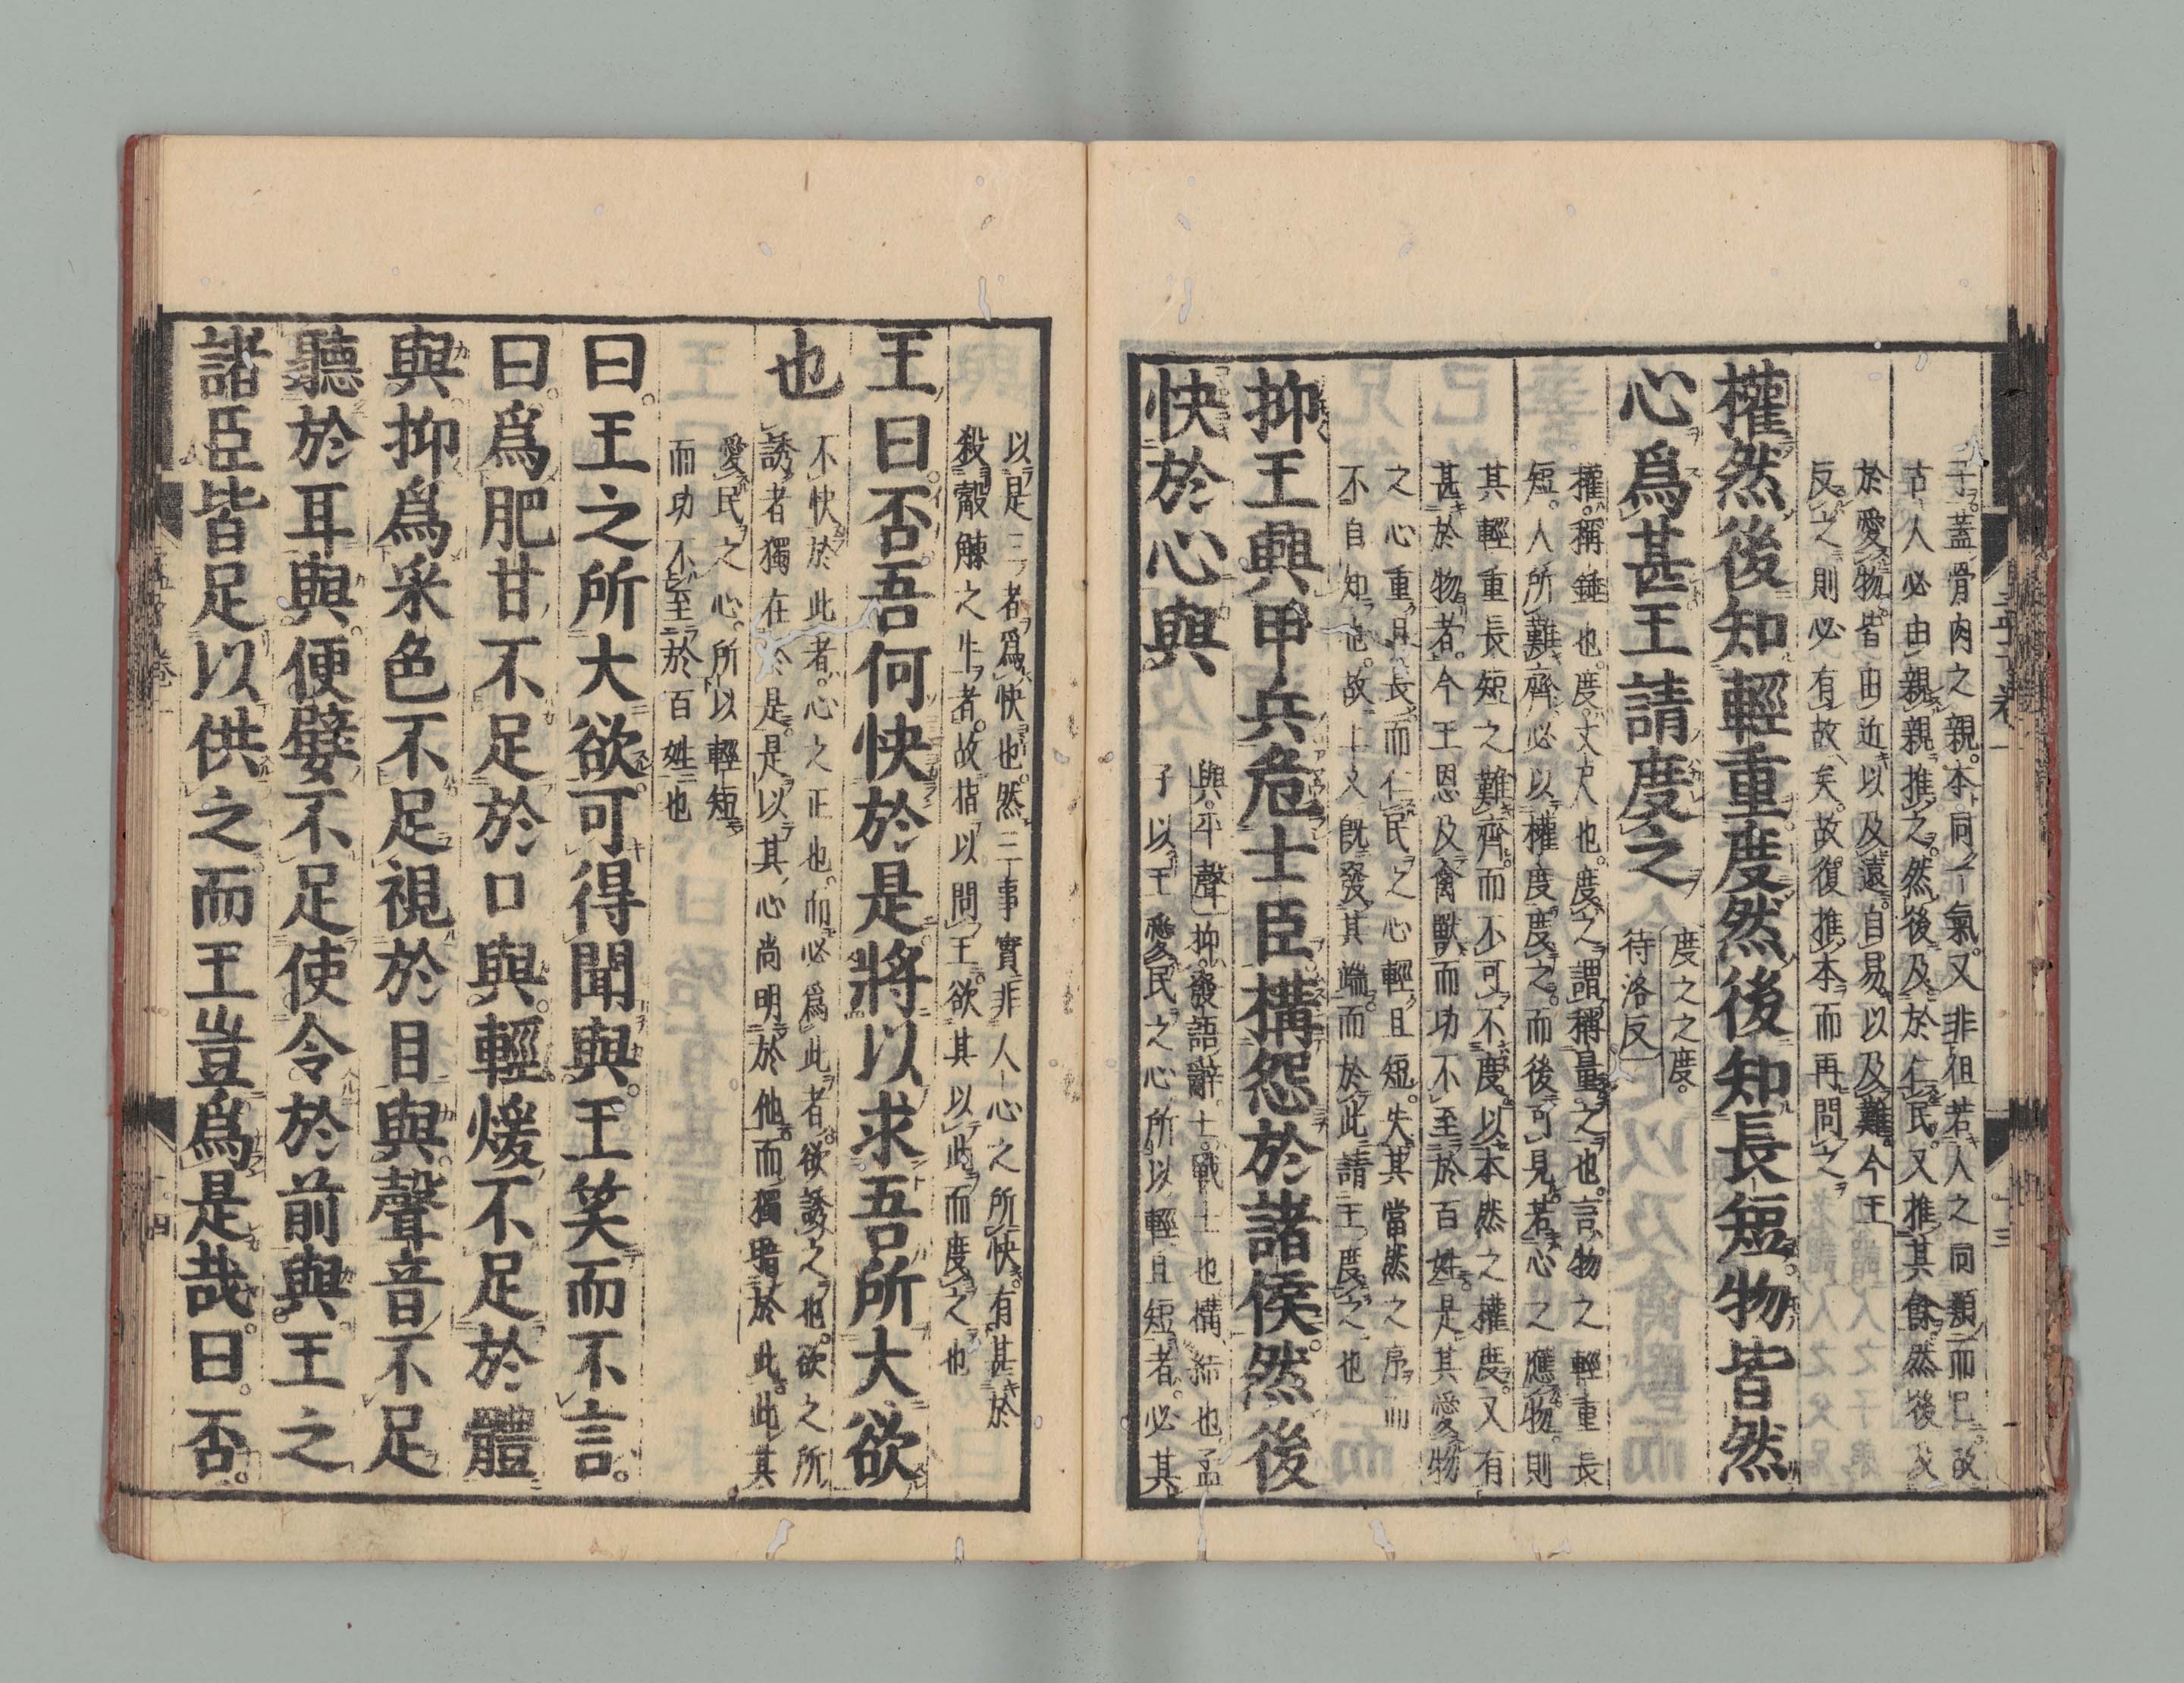 子蓋骨肉之親本同一氣又非徂若人之同類而已故
古人必由親親推之然後及於仁民又推其餘然後及
於愛物皆由近以及遠自易以及難今王
反之則必有故矣故復推本而再問之
權然後知輕重度然後知長短物皆然
心爲甚王請度之
度之之度
待洛反
權稱錘也度丈尺也度之謂稱量之也言物之輕重長
短人所難齊必以權度度之而後可見若心之應物則
其輕重長短之難齊而不可不度以本然之權度又有
甚於物者今王恩及禽獸而功不至於百姓是其愛物
之心重且長而仁民之心輕且短失其當然之序而
不自知也故上文既發其端而於此請王度之也
抑王興甲兵危士臣構怨於諸侯然後
快於心與
與平聲抑發語辭士戰士也構結也孟
子以王愛民之心所以輕且短者必其
孟子卷一
十三
以是三者爲快也然三事實非人心之所快有甚於
殺觳觫之牛者故指以問王欲其以此而度之也
王曰否吾何快於是將以求吾所大欲
也
不快於此者心之正也而必爲此者欲誘之也欲之所
誘者獨在於是是以其心尚明於他而獨暗於此此其
愛民之心所以輕短
而功不至於百姓也
曰王之所大欲可得聞與王笑而不言
曰爲肥甘不足於口與輕煖不足於體
與抑爲采色不足視於目與聲音不足
聽於耳與便嬖不足使令於前與王之
諸臣皆足以供之而王豈爲是哉曰否